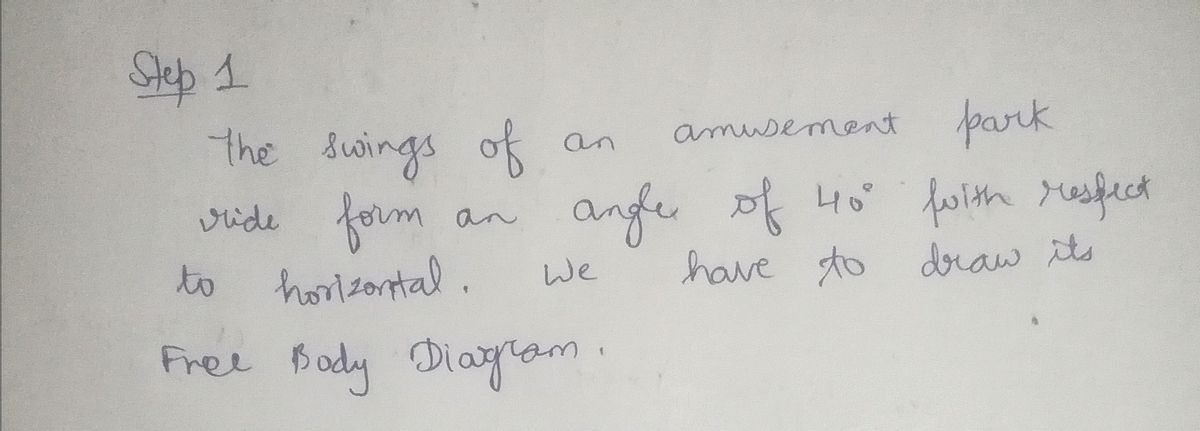 Step 1
The swings of an amusement park
ride form an angle of 40° with respect
to horizontal. We have to draw its
Free Body Diagram.